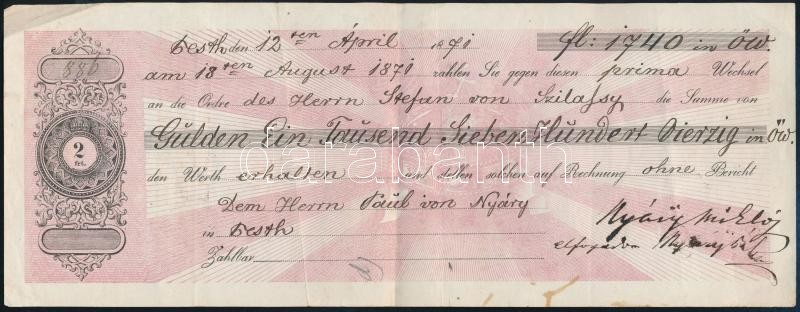 886
Pesth den 12ten April 1871 fl: 1740 in ÖW.
am 18ten August 1871 zahlen Sie gegen diesen prima Wechsel
an die Ordre des Herrn Stefan von Szilassy die Summe von
Gulden Ein Tausend Sieben Hundert Vierzig in ÖW.
2
den Werth erhalten und stellen solchen auf Rechnung ohne Bericht
Dem Herrn Paul von Nyáry
in Pesth
Zahlbar
Nyáry Miklós
elfogadom Nyáry Pál
darabanth